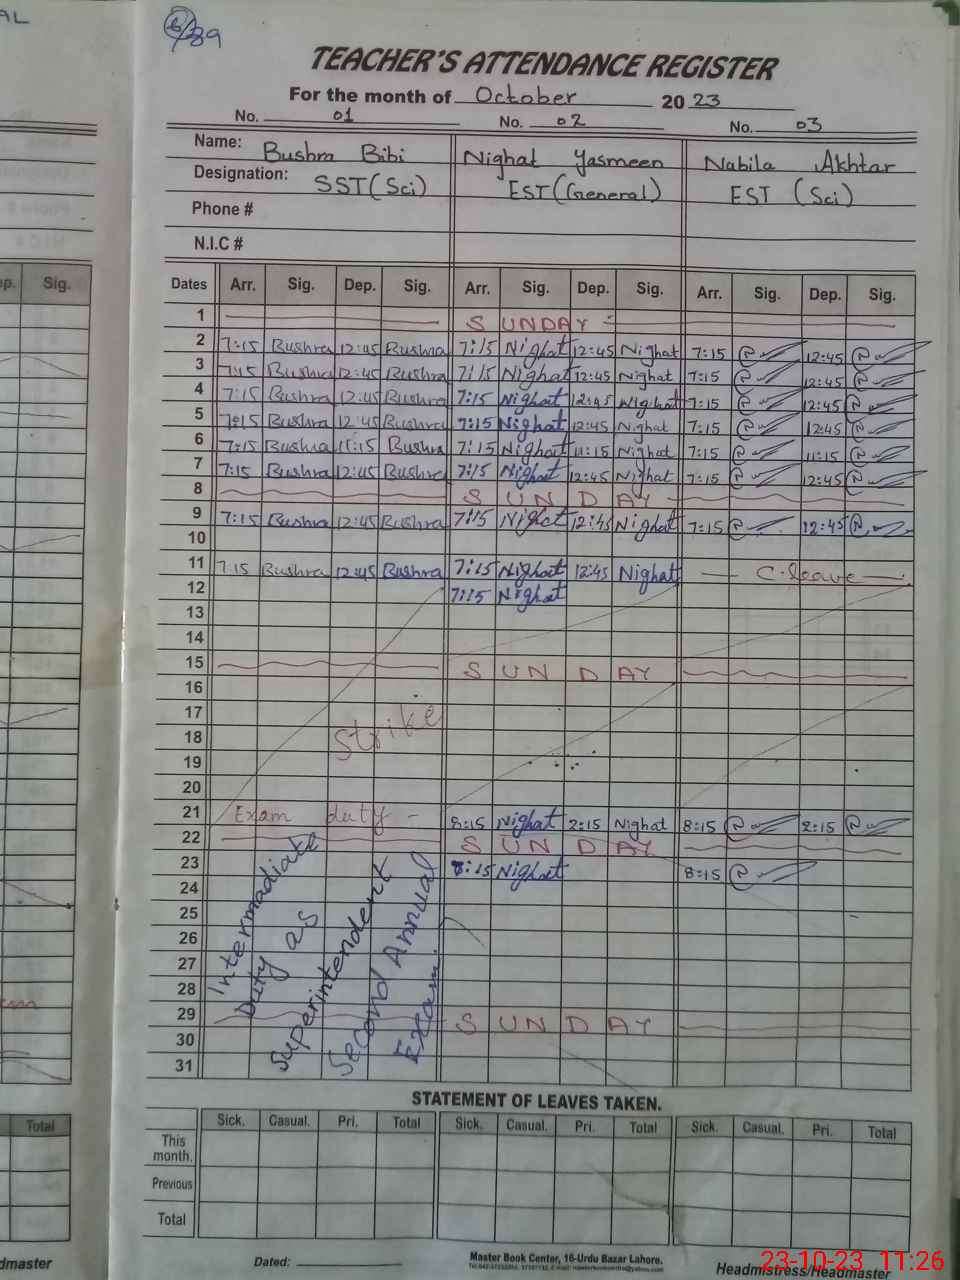 AL
6/39
TEACHER'S ATTENDANCE REGISTER
For the month of October 20 23
No. 01 No. 02 No. 03
Name: Bushra Bibi Nighat Yasmeen Nabila Akhtar
Designation: SST (Sci) EST (General) EST (Sci)
Phone #
N.I.C #
ep. Sig. Dates Arr. Sig. Dep. Sig. Arr. Sig. Dep. Sig. Arr. Sig. Dep. Sig.
1 SUNDAY
2 7:15 Bushra 12:45 Bushra 7:15 Nighat 12:45 Nighat 7:15 12:45
3 7:15 Bushra 12:45 Bushra 7:15 Nighat 12:45 Nighat 7:15 12:45
4 7:15 Bushra 12:45 Bushra 7:15 Nighat 12:45 Nighat 7:15 12:45
5 7:15 Bushra 12:45 Bushra 7:15 Nighat 12:45 Nighat 7:15 12:45
6 7:15 Bushra 11:15 Bushra 7:15 Nighat 11:15 Nighat 7:15 11:15
7 7:15 Bushra 12:45 Bushra 7:15 Nighat 12:45 Nighat 7:15 12:45
8 SUNDAY
9 7:15 Bushra 12:45 Bushra 7:15 Nighat 12:45 Nighat 7:15 12:45
10
11 7:15 Bushra 12:45 Bushra 7:15 Nighat 12:45 Nighat C.leave
12 7:15 Nighat
13
14
15 SUNDAY
16
17
Strike
18
19
20
21 Exam duty - 8:15 Nighat 2:15 Nighat 8:15 2:15
22 SUNDAY
23 8:15 Nighat 8:15
24
25
26
27
28
29 SUNDAY
30
31
Intermadiate
Duty as
Superintendent
Second Annual
Exam.
STATEMENT OF LEAVES TAKEN.
Total Sick. Casual. Pri. Total Sick. Casual. Pri. Total Sick. Casual. Pri. Total
This month.
Previous
Total
dmaster Dated: Master Book Center, 16-Urdu Bazar Lahore.
Headmistress/Headmaster
23-10-23 11:26